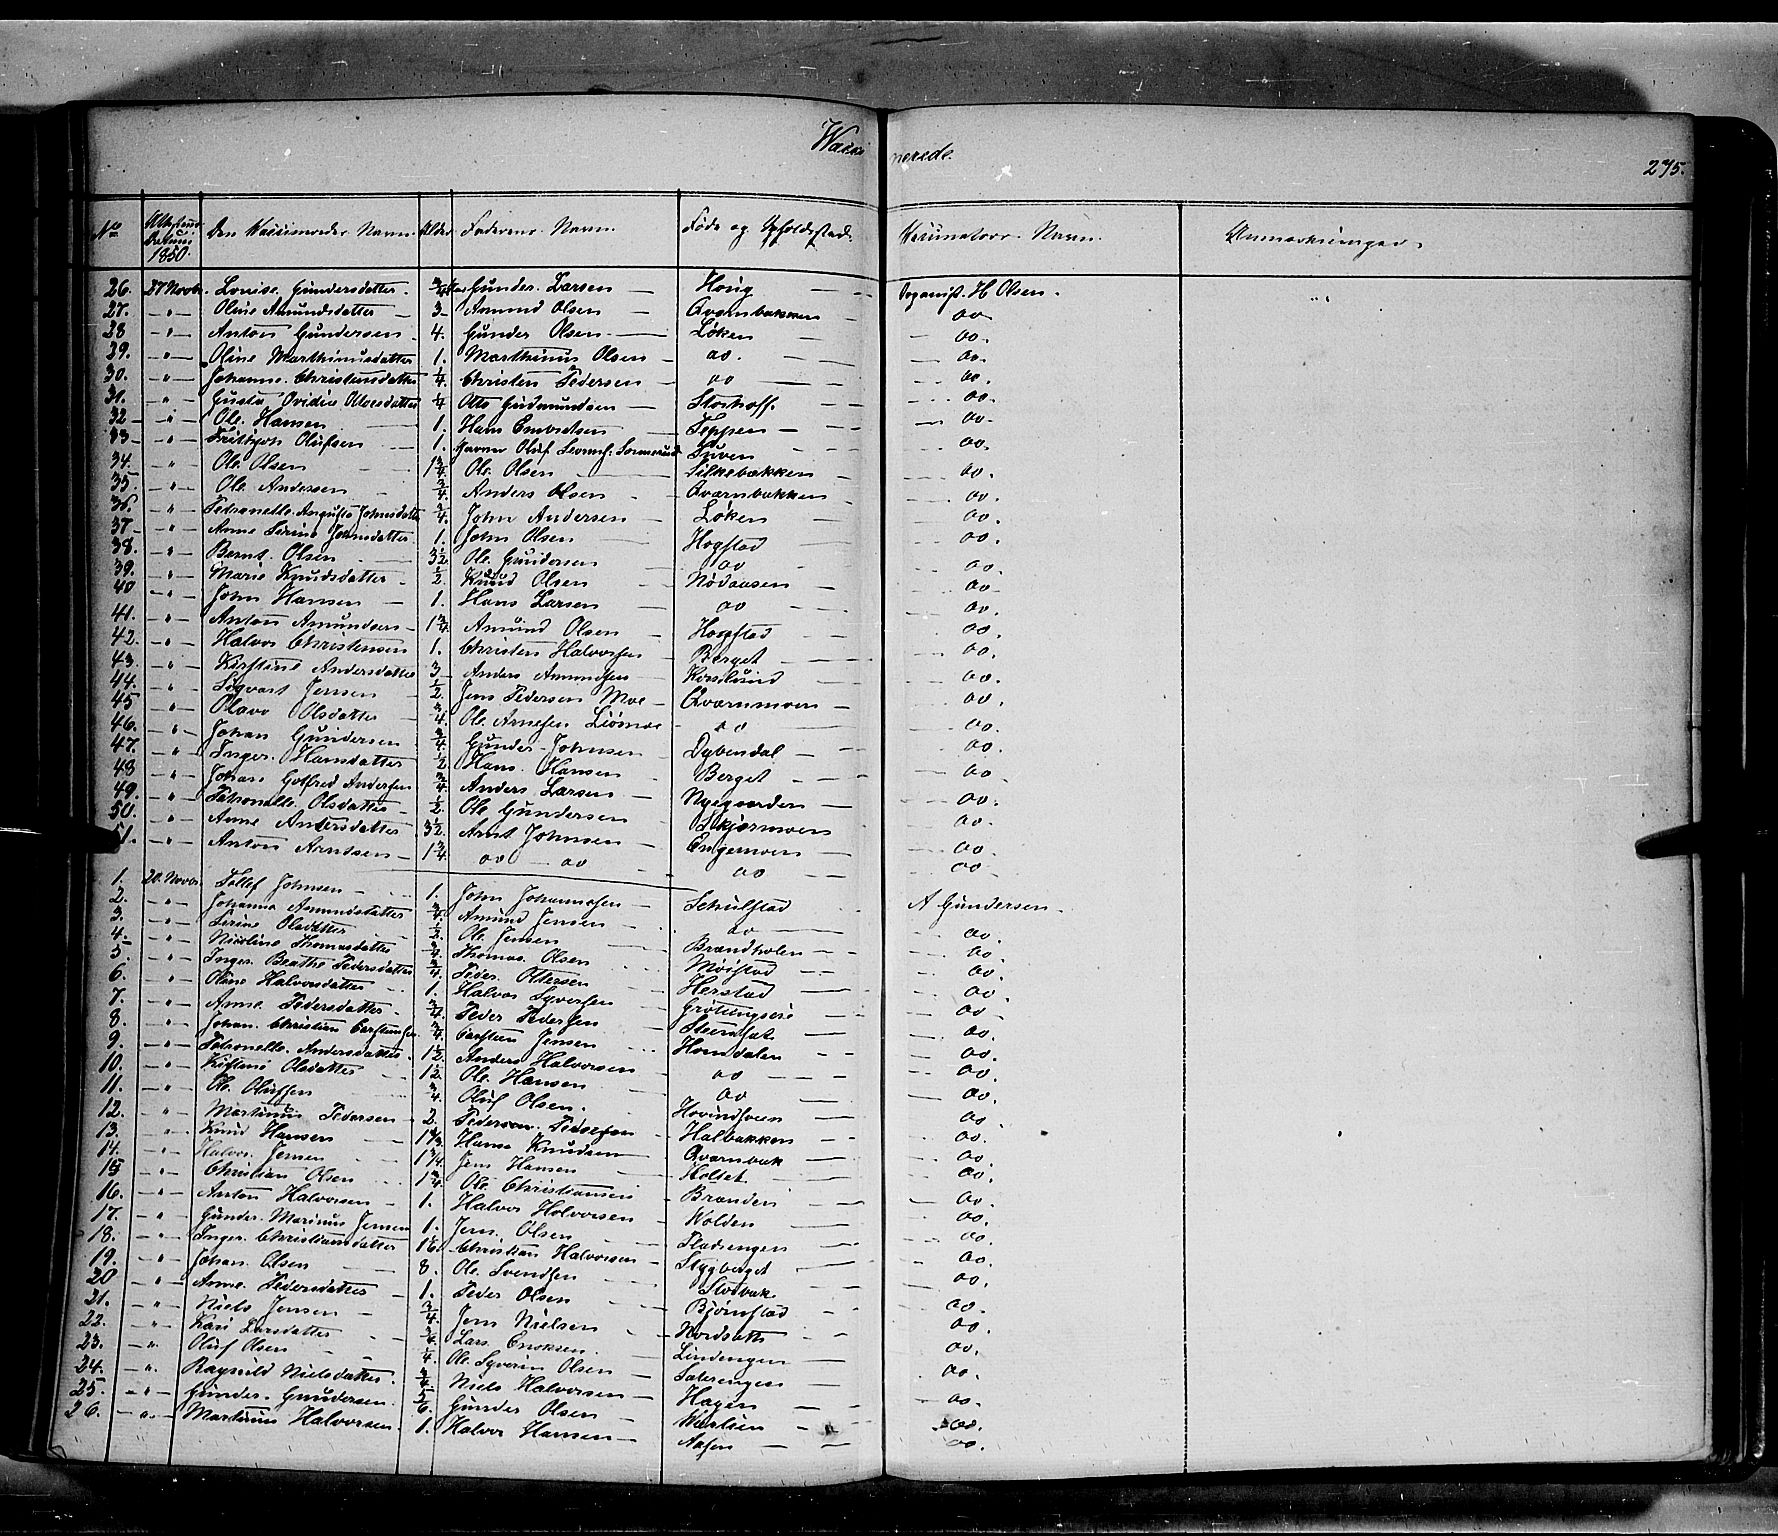 Vaccinerede.
275.
No Attestens Datum 1850. Den Vaccineredes Navn. Alder Faderens Navn. Føde og Opholdssted. Vaccinateurs Navn. Anmærkninger.
26. 27 Novbr. Lovise Gundersdatter 3/4 Aar Gunder Larsen Organist H Olsen.
27. " Oline Amundsdatter 3 Amund Olsen Qvernbakken do
28 " Anton Gundersen 4. Gunder Olsen Løken do.
29. " Oline Marthinusdatter 1. Marthinus Olsen do. do.
30. " Johanne Christensdatter 1/4 Christen Pedersen do do.
31. " Gusta Ovidia Ottosdatter 1/4 Otto Gudmundsen do.
32 " Ole Hansen 1. Hans Teppen do.
33 " Frithjoh Olufsen 1. Oluf do.
34. " Ole Olsen 1 3/4 Ole Olsen Silkebækken do.
35. " Ole Andersen 3/4 Anders Olsen Qvernbakken do.
36. " Petronelle Augusta Johnsdatter 3/4 John Andersen Løken do.
37 " Anne Sirine Johnsdatter 1. John Olsen Hogstad do.
38. " Bernt Olsen 3 1/2 Ole Gundersen do do.
39. " Marie Knudsdatter 1/2 Knud Olsen Nødaasen do.
40 " John Hansen 1. Hans Larsen do do.
41. " Anton Amundsen 1 3/4 Amund Olsen Hogstad do.
42. " Halvor Christensen 1. Christen Halvorsen Berget do.
43. " Kirstine Andersdatter 3 Anders Amundsen Korslund do.
44. " Sigvart Jensen 1/2 Jens Pedersen Moe Qvernmoen do.
45 " Olava Olsdatter 3/4 Ole Arnesen do do.
46. " Johan Gundersen 3/4 Gunder Johnsen Dybendal do.
47. " Inger Hansdatter 1/2 Hans Hansen Berget do.
48 " Johan Gotfred Andersen 3/4 Anders Larsen Nyegaarden do.
49. " Petronelle Olsdatter 1/2 Ole Gundersen Skjærmoen do.
50. " Anne Andersdatter 3 1/2 Arnt Johnsen Engermoen do.
51. " Anton Arndsen 1 3/4 do do do do.
1. 20 Novbr. Tollef Johnsen 1. John Johannesen Schulstad A Gundersen.
2. " Johanna Amundsdatter 3/4 Amund Jensen do do.
3. " Sirine Olsdatter 1/2 Ole Jensen Brændholen do.
4. " Nicoline Thomasdatter 3/4 Thomas Olsen Moistad do.
5. " Inger Beathe Pedersdatter 3/4 Peder Ottersen Herstad do.
6. " Oline Halvorsdatter 1. Halvor Syversen do.
7. " Anne Pedersdatter 3/4 Peder Pedersen do.
8. " Johan Christian Carstensen 3/4 Carsten Jensen Homdalen do.
9. " Petronelle Andersdatter 1 1/2 Anders Halvorsen do do.
10. " Kirstine Olsdatter 1 1/2 Ole Hansen do do.
11. " Ole Olufsen 3/4 Oluf Olsen. do.
12. " Martinus Pedersen 2. Pedersen Pedersen Halbakken do.
13. " Knud Hansen Hans Knudsen Qvernbæk do.
14. " Halvor Jensen 1 3/4 Jens Hansen Holset do.
15 " Christian Olsen 1 3/4 Ole Christiansen Branden do.
16. " Anton Halvorsen 1. Halvor Halvorsen Wolden do.
17. " Gunder Marinus Jensen 1. Jens Olsen Pladsengen do.
18. " Inger Christiansdatter 1 1/6 Christian Halvorsen Stygberget do.
19. " Johan Olsen 8. Ole Svendsen Storbæk do.
20 " Anne Pedersdatter 1. Peder Olsen Bjørnstad do.
21. " Niels Jensen 3/4 Jens Nielsen Nordsæth do.
22. " Kari Larsdatter 3/4 Lars Enoksen. Lindengen do.
23. " Oluf Olsen 1/4 Ole Syverin Olsen Saterengen do.
24. " Ragnild Nielsdatter. 3/4 Niels Halvorsen Hagen do.
25. " Gunder Gundersen. 5/6. Gunder Olsen do.
26. " Martinus Halvorsen 1. Halvor Hansen Aasen do.